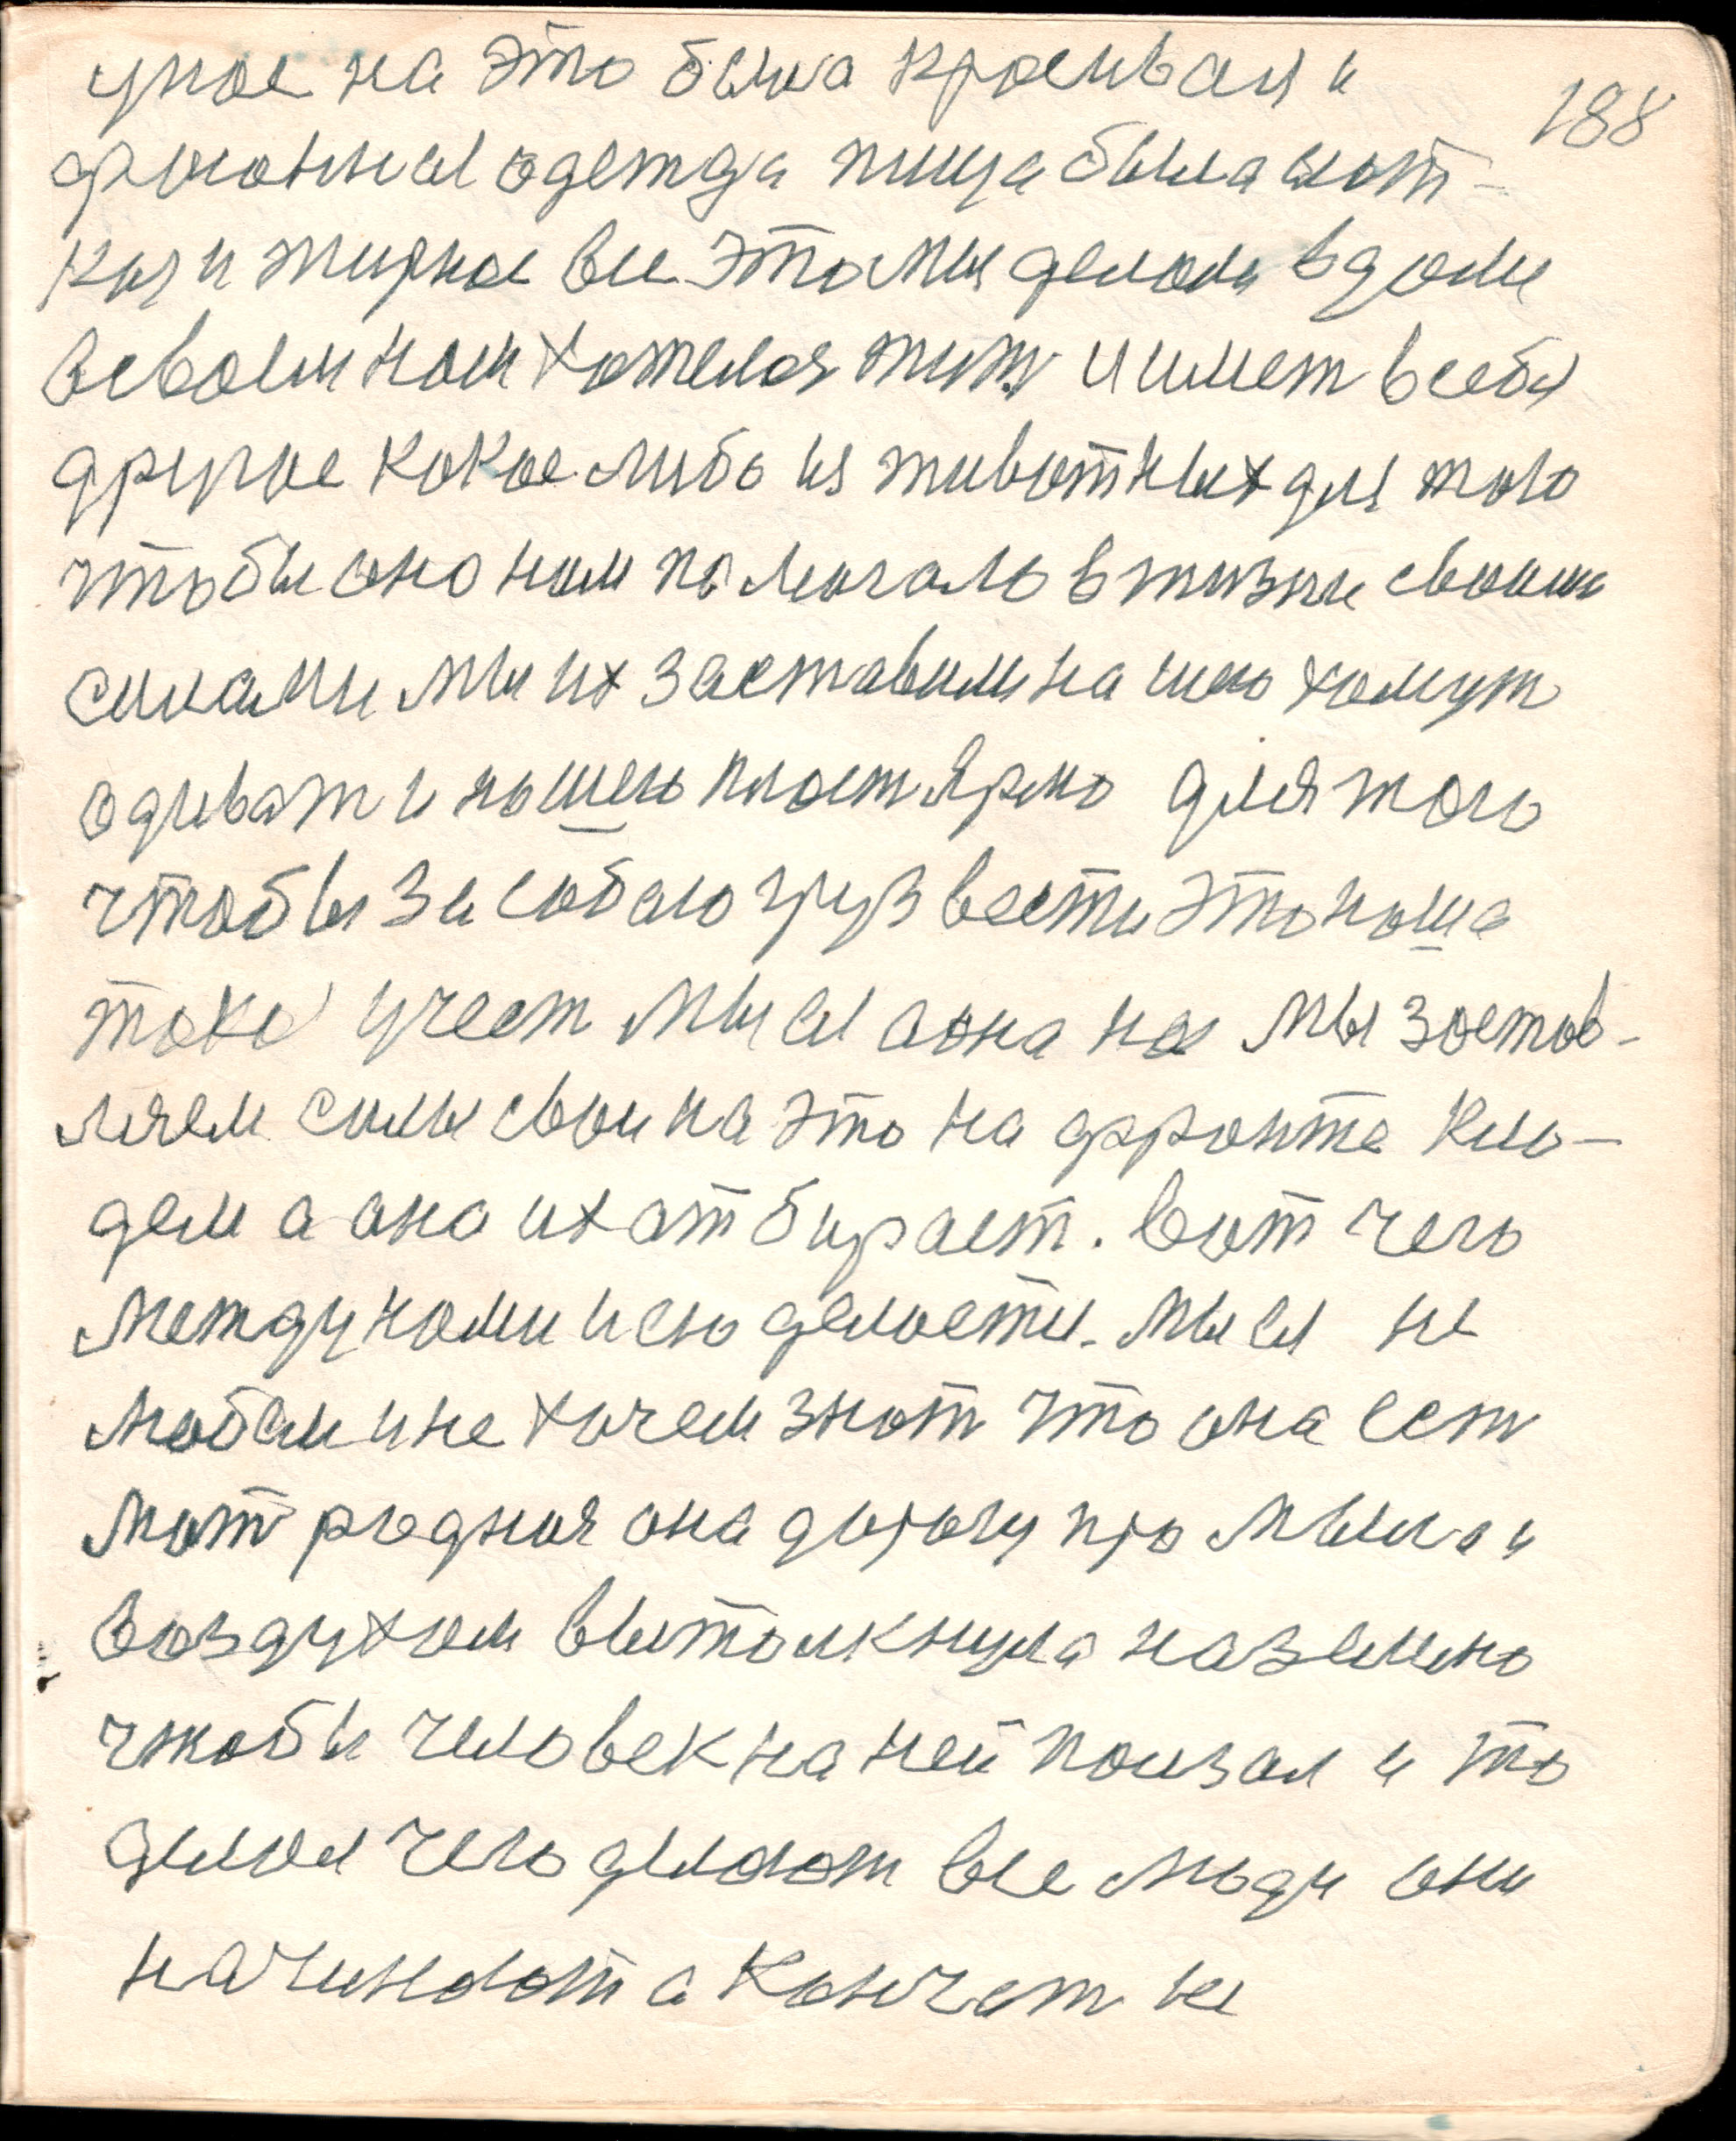 упае на это была красивая и
188
фасонная одежда пища была слат-
кая и жирная все это мы делали в доме
в своем нам хотелся жит и имет в себя
другое какое либо из животных для того
чтобы оно нам помогало в жизне своими
силами мы их заставили на шею хомут
одиват и на шею кладет ярмо для того
чтобы за собаю груз вести это наша
така учест мы ея а она нас мы застав-
ляем силы свои на это на фронте кла-
дем а она их отбирает. Вот чего
между нами и ею делается. мы ея не
любем и не хочем знат что она ест
мат родная она дорогу про мыла и
воздухом вытолкнула на землю
чтобы человек на ней ползал и то
делал чего делают все люди они
начинают а кончает не